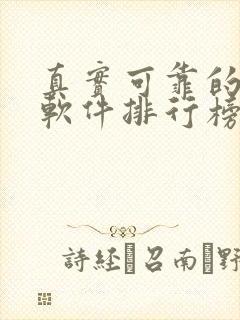 真實可靠的
軟件排行榜
詩經 召南 野